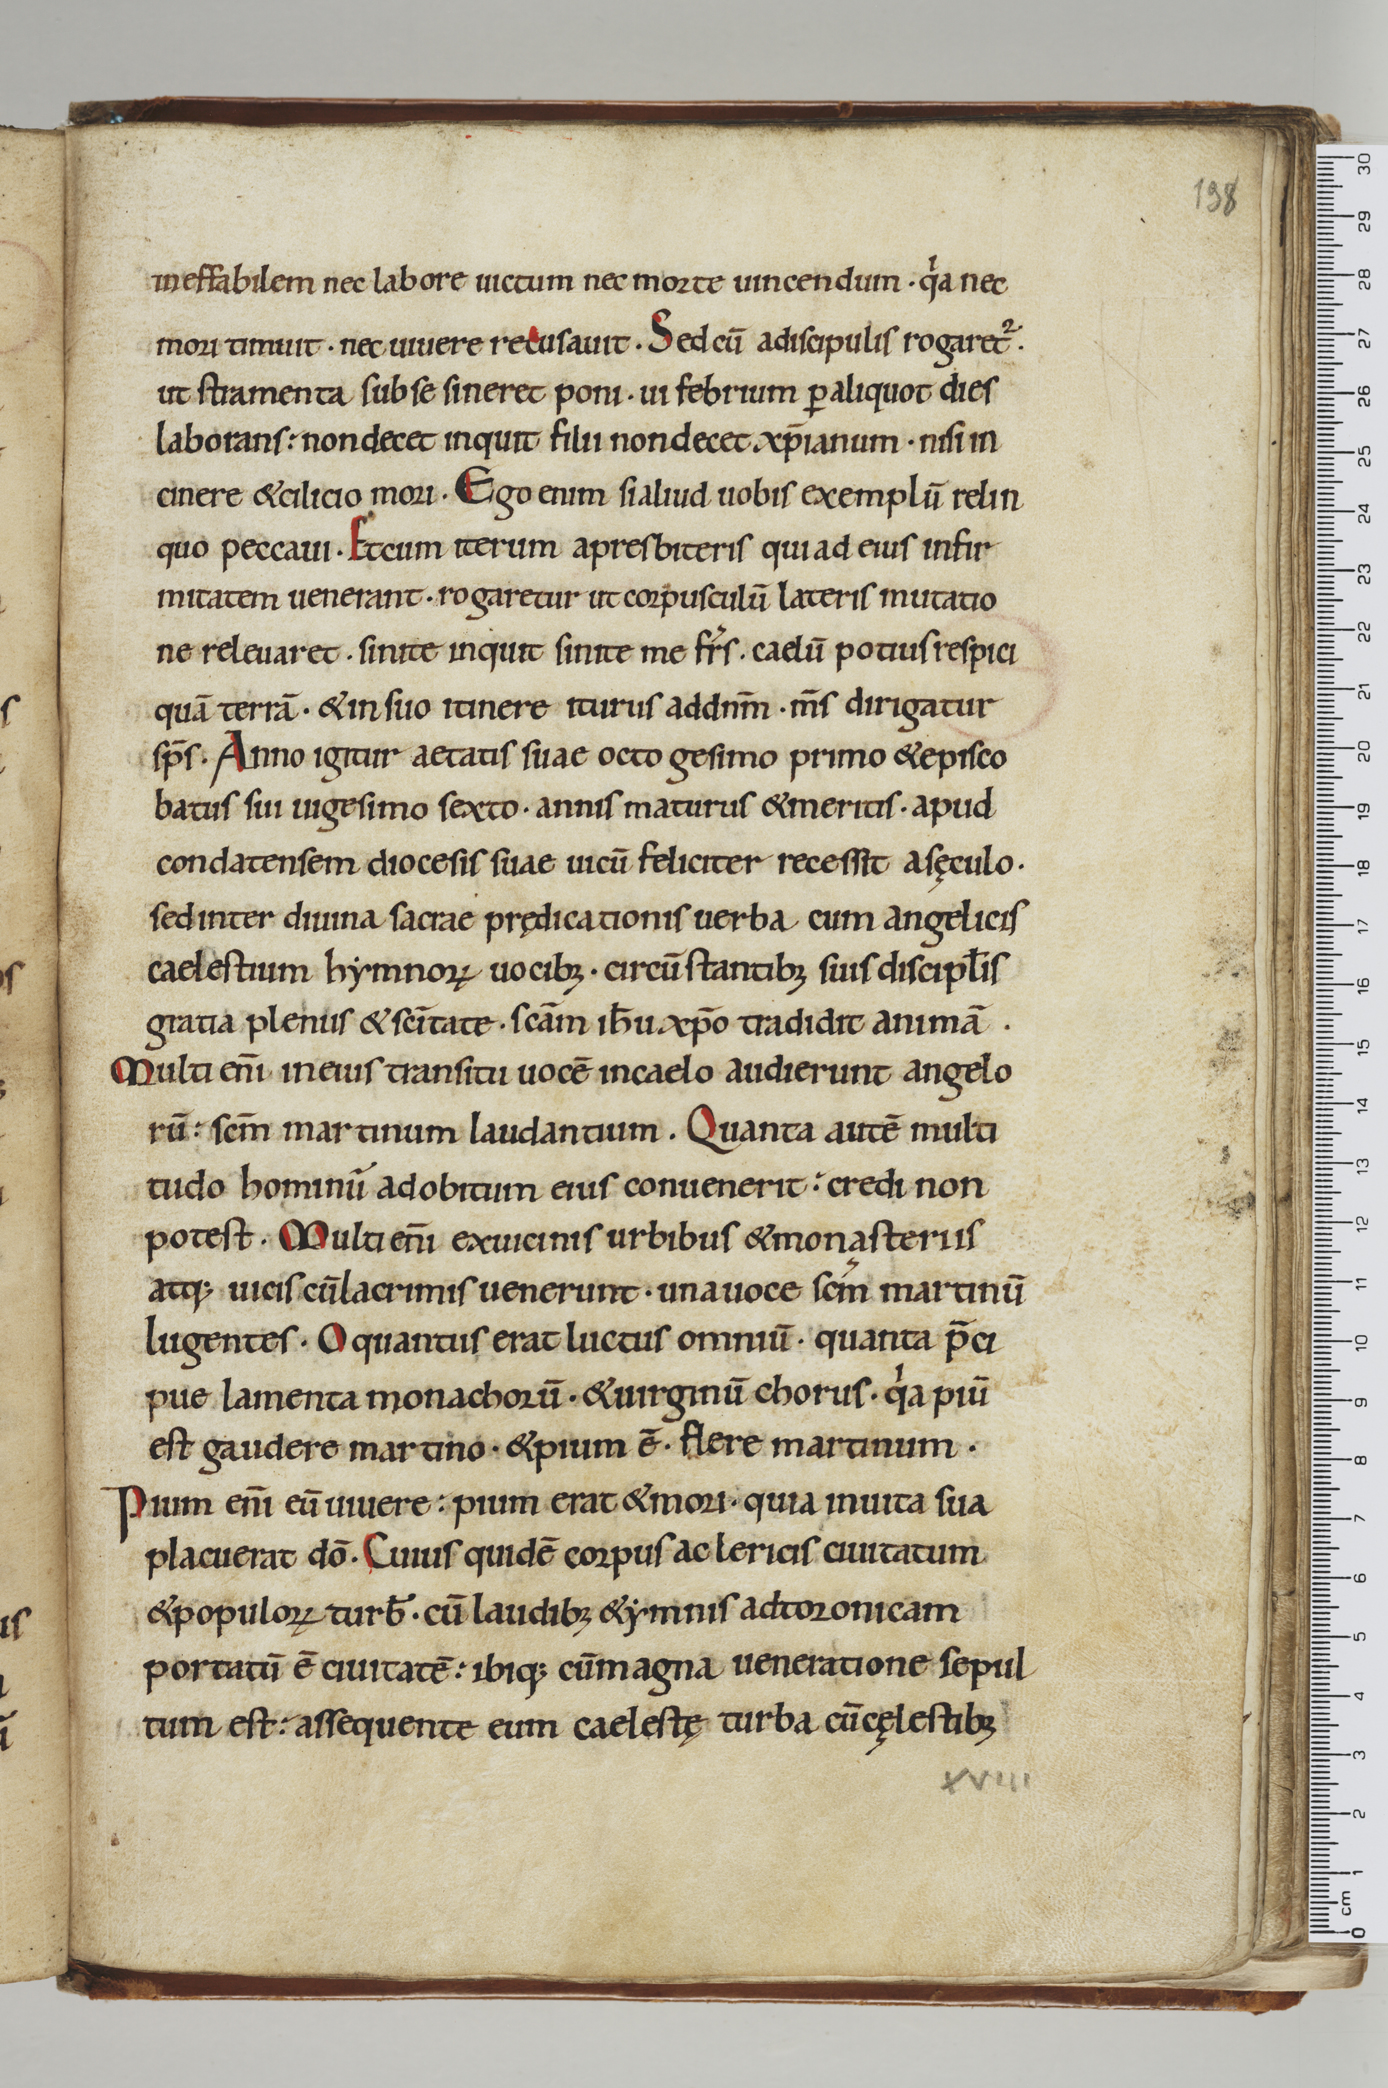 198
ineffabilem nec labore uictum nec morte uincendum · qͥa nec
mori timuit · nec uiuere recusauit . Sed cū adiscipulis rogaret᷑ .
ut stramenta subse sineret poni · ui febrium ꝑaliquot dies
laborans : nondecet inquit filii nondecet xp̄ianum · nisi in
cinere &cilicio mori · Ego enim sialiud uobis exemplū relin
quo peccaui . Etcum iterum apresbiteris quiad eius infir
mitatem uenerant · rogaretur ut corpusculū lateris mutatio
ne releuaret · sinite inquit sinite me fr̄s . caelū potius respici
quā terrā · &in suo itinere iturus addn̄m · m̄s dirigatur
sp̄s . Anno igitur aetatis suae octogesimo primo &episco
batus sui uigesimo sexto · annis maturus &meritis · apud
condatensem diocesis suae uicū feliciter recessit asęculo .
sed inter diuina sacrae prędicationis uerba cum angelicis
caelestium hẏmnoꝝ uocibꝫ · circūstantibꝫ suis discipl̄is
gratia plenus &sc̄itate · sc̄am ih̄u xp̄o tradidit animā .
Multi en̄i ineius transitu uocē incaelo audierunt angelo
rū : sc̄m martinum laudantium . Quanta autē multi
tudo hominū adobitum eius conuenerit : credi non
potest . Multi en̄i exuicinis urbibus &monasteriis
atqꝫ uicis cūlacrimis uenerunt · unauoce sc̄m martinū
lugentes · O quantus erat luctus omniū · quanta p̄ci
pue lamenta monachorū · &uirginū chorus · qͥa piū
est gaudere martino · &pium ē · flere martinum .
Pium en̄i eū uiuere : pium erat &mori · quia inuita sua
placuerat dō . Cuius quidē corpus aclericis ciuitatum
&populoꝝ turb̄ · cū laudibꝫ &ẏmnis adtoronicam
portatū ē ciuitatē : ibiqꝫ cūmagna ueneratione sepul
tum est : assequente eum caelestę turba cūcęlestibꝫ
XVIII